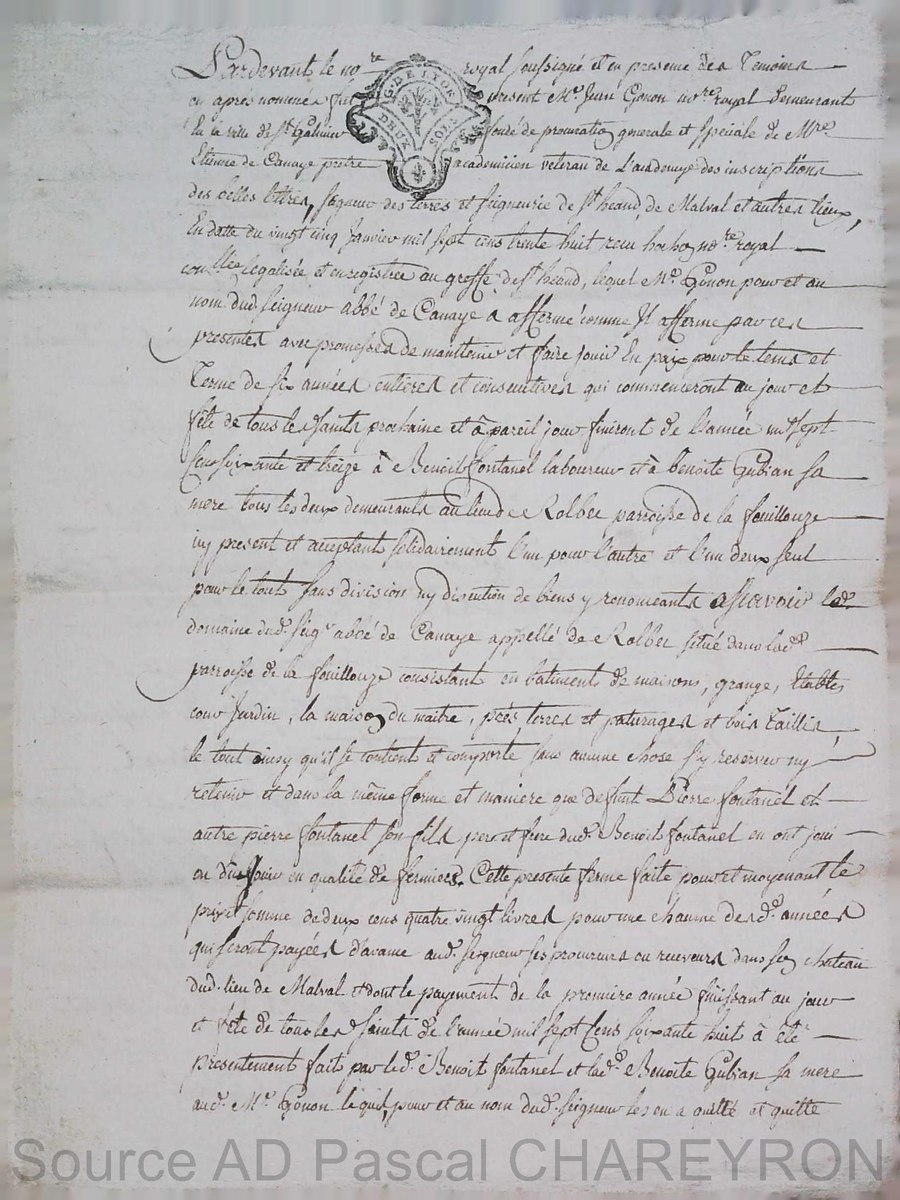 Pardevant le nore royal soussigné et en presence des temoins
cy apres nommés fut present Me. Jean Gonon nore royal demeurant
en la ville de St Galmier fondé de procuration generale et speciale de Mre
Etienne de Canaye pretre academicien veteran de L'academye des inscriptions
des belles lettres, seigneur des terres et seigneurie de St heand, de Malval et autres lieux,
En datte du vingt cinq Janvier mil sept cens trente huit recu nore royal
legalisée et enregistrée au greffe de St heand, lequel Me. Gonon pour et au
nom dud. seigneur abbé de Canaye a affermé comme Il afferme par ces
presentes avec promesses de maintenir et faire jouir En paix pour le tems et
terme de six années entieres et consecutives qui commenceront au jour et
fête de tous les saints prochaine et à pareil jour finiront de l'année mil sept
cens soixante et treize à Benoit fontanel laboureur et à benoite Gubian sa
mere tous les deux demeurants au lieu de Rolbec parroisse de la fouillouze
icy present et acceptant solidairement l'un pour l'autre et l'un deux seul
pour le tout sans division ny discution de biens y renonceants assavoir led.
domaine dud. seigr abbé de Canaye appellé de Rolbec situé dans lade
parroisse de la fouillouze consistant en bâtiments de maisons, grange, Etables
cour Jardin, la maison du maitre, prés terres et paturages et bois taillis,
le tout ainsy qu'il se contient et comporte sans aucune chose s'y reserver ny
retenir et dans la même forme et maniere que defunt Pierre fontanel et
autre pierre fontanel son fils pere et frere dud. Benoit fontanel en ont joui
ou dû jouir en qualité de fermiers. Cette presente ferme faite pour et moyenant le
prix et somme de deux cens quatre vingt livres pour une chacune desd. années
qui seront payées d'avance aud. seigneur ses procureurs ou receveurs dans son chateau
dud. lieu de Malval et dont le payement de la premiere année finissant au jour
et fête de tous les saints de l'année mil sept cens soixante huit à été
presentement fait par led. Benoit fontanel et lade. Benoite Gubian sa mere
aud. Me. Gonon lequel, pour et au nom dud. seigneur les en a quitté et quitte
G. DE LYON
DEUX SOLS
Source AD Pascal CHAREYRON